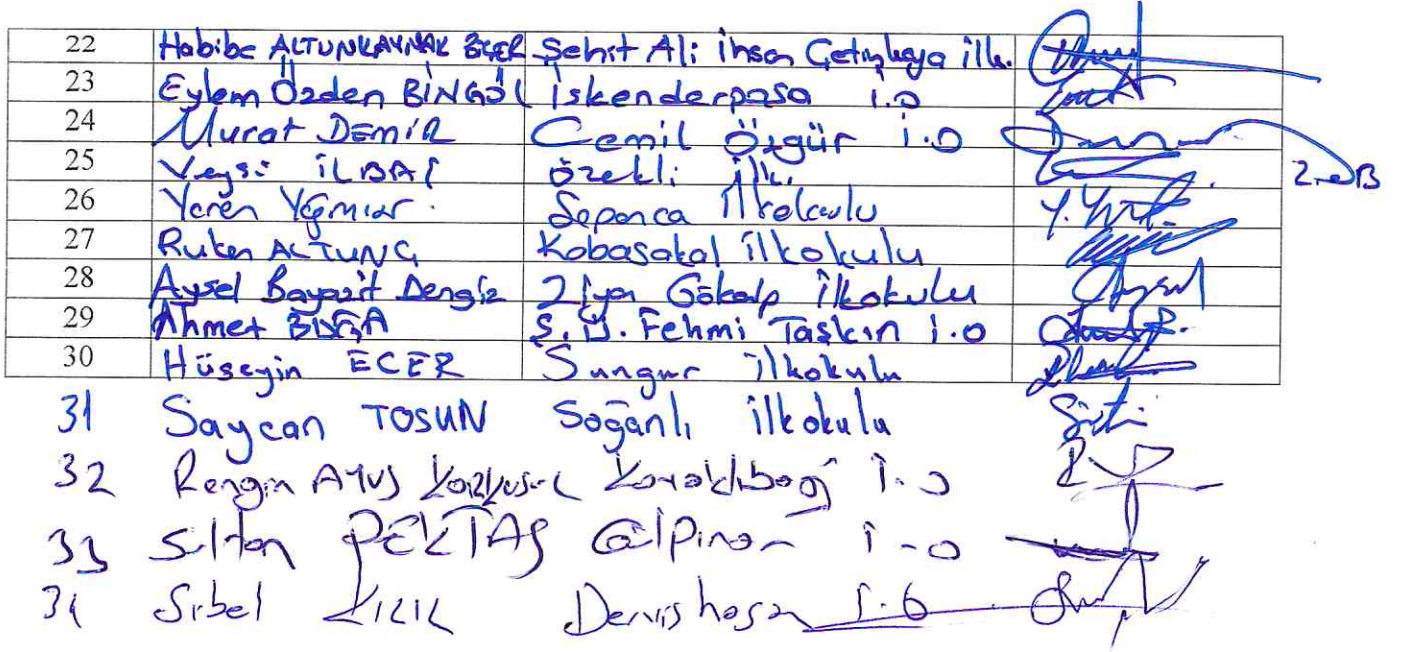 22 Habibe ALTUNKAYNAK ECER Şehit Ali İhsan Çetinkaya ilk.
23 Eylem Özden BİNGÖL İskenderpaşa i.o
24 Murat DEMİR Cemil Özgür i.o
25 Veysi İLBAŞ Özekli ilk.
26 Yeren Yağmur Soponca İlkokulu
27 Ruken ALTUNÇ Kobasakal ilkokulu
28 Aysel Bayazit Dengiz Ziya Gökalp ilkokulu
29 Ahmet Ş.Ü. Fehmi Taşkın i.o
30 Hüseyin ECER Sungur ilkokulu
31 Saycan TOSUN Soğanlı ilkokulu
32 Rengin i.o
33 Sultan PEKTAŞ i-o
34 Sibel KILIK Dervişhasan İ.Ö